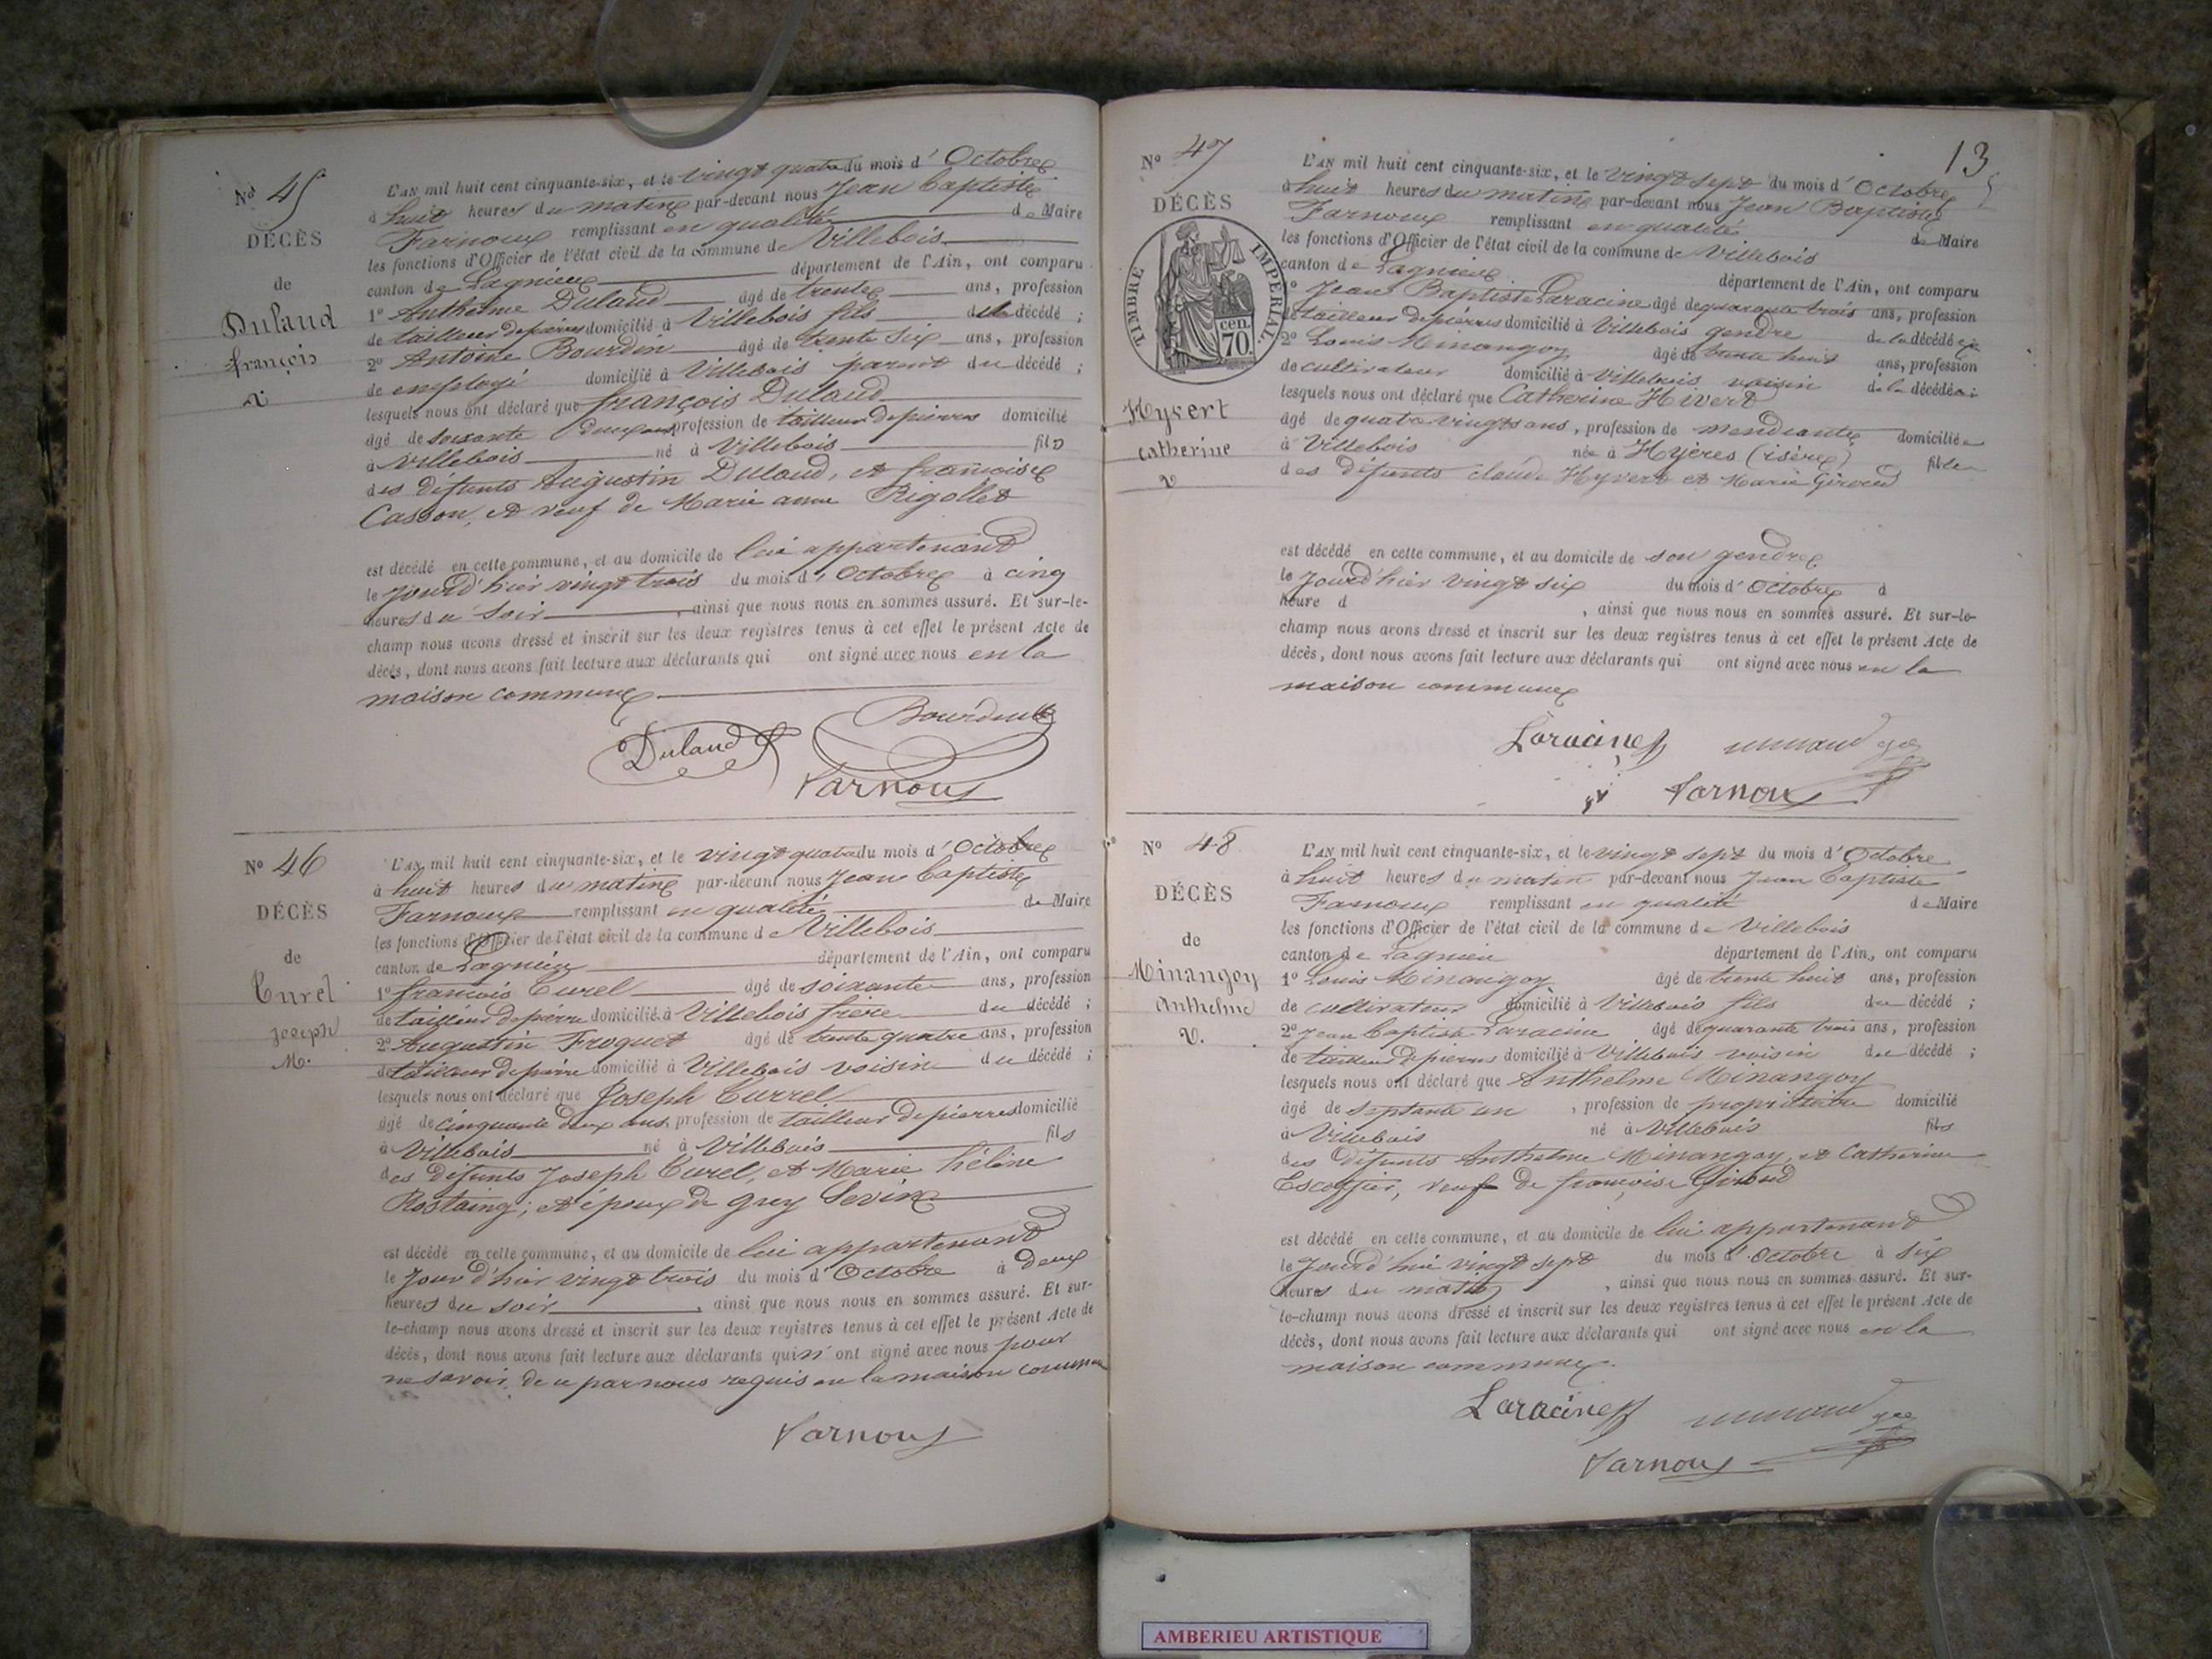 Nº 45
DÉCÈS
de
Dulaud
françois
V
L'AN mil huit cent cinquante-six, et le vingt quatre du mois d'Octobre
à huit heures du matin par-devant nous Jean Baptiste
Farnoux remplissant en qualité de Maire
les fonctions d'Officier de l'état civil de la commune de Villebois
canton de Lagnieu département de l'Ain, ont comparu
1º Anthelme Dulaud âgé de trente ans, profession
de tailleur de pierres domicilié à Villebois fils du décédé ;
2º Antoine Bourdin âgé de trente six ans, profession
de employé domicilié à Villebois parent du décédé ;
lesquels nous ont déclaré que françois Dulaud
âgé de soixante deux ans profession de tailleur de pierres domicilié
à Villebois né à Villebois fils
des défunts Augustin Dulaud, et françoise
Casson, et veuf de Marie anne Rigollet
est décédé en cette commune, et au domicile de lui appartenant
le jourd'hier vingt trois du mois d'Octobre à cinq
heures du soir, ainsi que nous nous en sommes assuré. Et sur-le-
champ nous avons dressé et inscrit sur les deux registres tenus à cet effet le présent Acte de
décès, dont nous avons fait lecture aux déclarants qui ont signé avec nous en la
maison commune
Bourdin
Dulaud
Farnoux
Nº 46
DÉCÈS
de
Curel
joseph
M.
L'AN mil huit cent cinquante-six, et le vingt quatre du mois d'Octobre
à huit heures du matin par-devant nous Jean Baptiste
Farnoux remplissant en qualité de Maire
les fonctions d'Officier de l'état civil de la commune de Villebois
canton de Lagnieu département de l'Ain, ont comparu
1º françois Curel âgé de soixante ans, profession
de tailleur de pierre domicilié à Villebois frère du décédé ;
2º Augustin Froquet âgé de trente quatre ans, profession
de tailleur de pierre domicilié à Villebois voisin du décédé ;
lesquels nous ont déclaré que Joseph Currel
âgé de cinquante deux ans, profession de tailleur de pierres domicilié
à Villebois né à Villebois fils
des défunts Joseph Curel, et Marie héline
Rostaing ; et époux de Grey
est décédé en cette commune, et au domicile de lui appartenant
le jour d'hier vingt trois du mois d'Octobre à deux
heures du soir, ainsi que nous nous en sommes assuré. Et sur-
le-champ nous avons dressé et inscrit sur les deux registres tenus à cet effet le présent Acte de
décès, dont nous avons fait lecture aux déclarants qui n'ont signé avec nous pour
ne savoir, de ce par nous requis en la maison commune
Farnoux
13
Nº 47
DÉCÈS
TIMBRE IMPÉRIAL
cen.
70
Hyvert
catherine
V
L'AN mil huit cent cinquante-six, et le vingt sept du mois d'Octobre
à huit heures du matin par-devant nous Jean Baptiste
Farnoux remplissant en qualité de Maire
les fonctions d'Officier de l'état civil de la commune de Villebois
canton de Lagnieu département de l'Ain, ont comparu
1º Jean Baptiste Laracine âgé de quarante trois ans, profession
de tailleur de pierres domicilié à Villebois gendre de la décédée
2º Louis Minangoy âgé de trente huit ans, profession
de cultivateur domicilié à Villebois voisin de la décédée ;
lesquels nous ont déclaré que Catherine Hivert
âgé de quatre vingts ans, profession de mendiante domiciliée
à Villebois née à Hyères (isère) fille
des défunts claude Hyvert et Marie Giroud
est décédé en cette commune, et au domicile de son gendre
le jourd'hier vingt six du mois d'Octobre à
heure d , ainsi que nous nous en sommes assuré. Et sur-le-
champ nous avons dressé et inscrit sur les deux registres tenus à cet effet le présent Acte de
décès, dont nous avons fait lecture aux déclarants qui ont signé avec nous en la
maison commune
Laracine
Farnoux
Nº 48
DÉCÈS
de
Minangoy
Anthelme
V.
L'AN mil huit cent cinquante-six, et le vingt sept du mois d'Octobre
à huit heures du matin par-devant nous Jean Baptiste
Farnoux remplissant en qualité de Maire
les fonctions d'Officier de l'état civil de la commune de Villebois
canton de Lagnieu département de l'Ain, ont comparu
1º Louis Minangoy âgé de trente huit ans, profession
de cultivateur domicilié à Villebois fils du décédé ;
2º Jean Baptiste Laracine âgé de quarante trois ans, profession
de tailleur de pierres domicilié à Villebois voisin du décédé ;
lesquels nous ont déclaré que Anthelme Minangoy
âgé de septante un , profession de propriétaire domicilié
à Villebois né à Villebois fils
des défunts Anthelme Minangoy, et Catherine
Escoffier, veuf de françoise Giroud
est décédé en cette commune, et au domicile de lui appartenant
le jourd'hui vingt sept du mois d'Octobre à six
heures du matin , ainsi que nous nous en sommes assuré. Et sur-
le-champ nous avons dressé et inscrit sur les deux registres tenus à cet effet le présent Acte de
décès, dont nous avons fait lecture aux déclarants qui ont signé avec nous en la
maison commune.
Laracine
Farnoux
AMBERIEU ARTISTIQUE